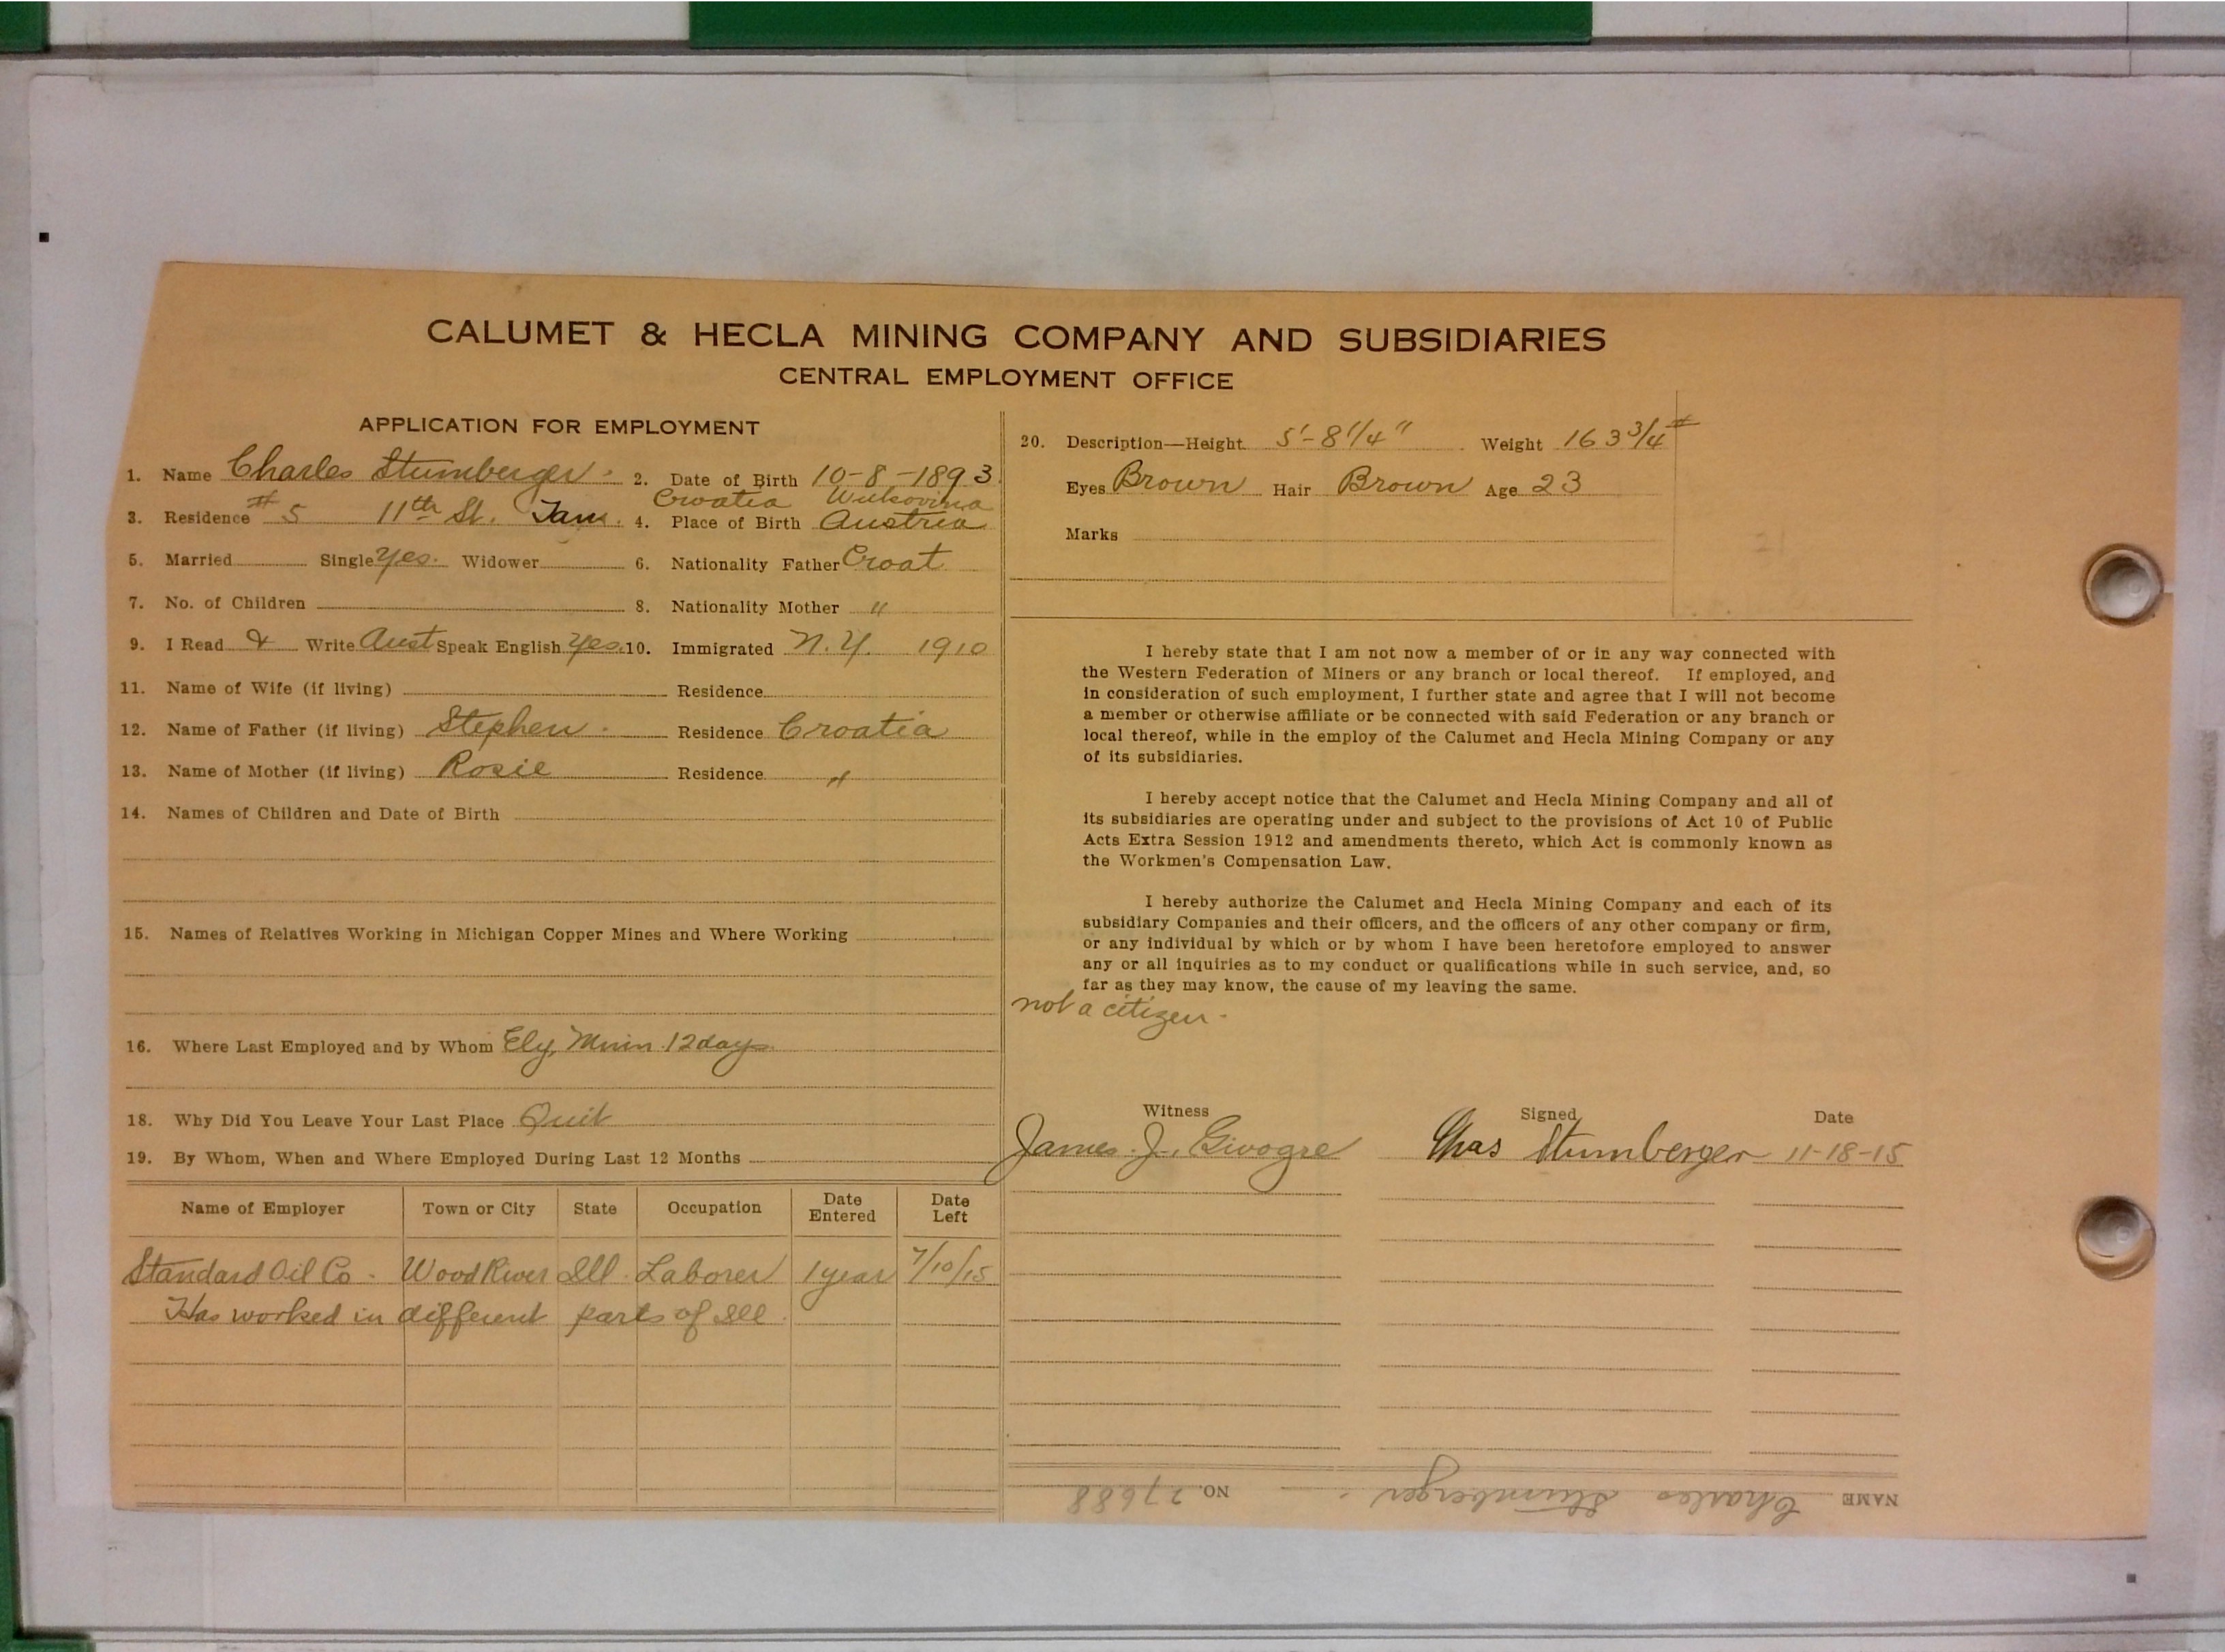 CALUMET & HECLA MINING COMPANY AND SUBSIDIARIES
CENTRAL EMPLOYMENT OFFICE
APPLICATION FOR EMPLOYMENT
1. Name Charles Stumberger 2. Date of Birth 10-8-1893
Croatia
3. Residence #5 11th St. Tam. 4. Place of Birth Austria
5. Married Single yes. Widower 6. Nationality Father Croat
7. No. of Children 8. Nationality Mother "
9. I Read & Write Aust Speak English yes. 10. Immigrated N.Y. 1910
11. Name of Wife (if living) Residence
12. Name of Father (if living) Stephen Residence Croatia
13. Name of Mother (if living) Rosie Residence "
14. Names of Children and Date of Birth
15. Names of Relatives Working in Michigan Copper Mines and Where Working
16. Where Last Employed and by Whom Ely, Minn. 12 days
18. Why Did You Leave Your Last Place Quit
19. By Whom, When and Where Employed During Last 12 Months
Name of Employer Town or City State Occupation Date Entered Date Left
Standard Oil Co. Wood River Ill. Laborer 1 year 7/10/15
Has worked in different parts of Ill.
20. Description—Height 5'-8 1/4" Weight 163 3/4 #
Eyes Brown Hair Brown Age 23
Marks
I hereby state that I am not now a member of or in any way connected with
the Western Federation of Miners or any branch or local thereof. If employed, and
in consideration of such employment, I further state and agree that I will not become
a member or otherwise affiliate or be connected with said Federation or any branch or
local thereof, while in the employ of the Calumet and Hecla Mining Company or any
of its subsidiaries.
I hereby accept notice that the Calumet and Hecla Mining Company and all of
its subsidiaries are operating under and subject to the provisions of Act 10 of Public
Acts Extra Session 1912 and amendments thereto, which Act is commonly known as
the Workmen's Compensation Law.
I hereby authorize the Calumet and Hecla Mining Company and each of its
subsidiary Companies and their officers, and the officers of any other company or firm,
or any individual by which or by whom I have been heretofore employed to answer
any or all inquiries as to my conduct or qualifications while in such service, and, so
far as they may know, the cause of my leaving the same.
not a citizen.
Witness Signed Date
James J. Chas Stumberger 11-18-15
NAME Charles Stumberger NO. 27688